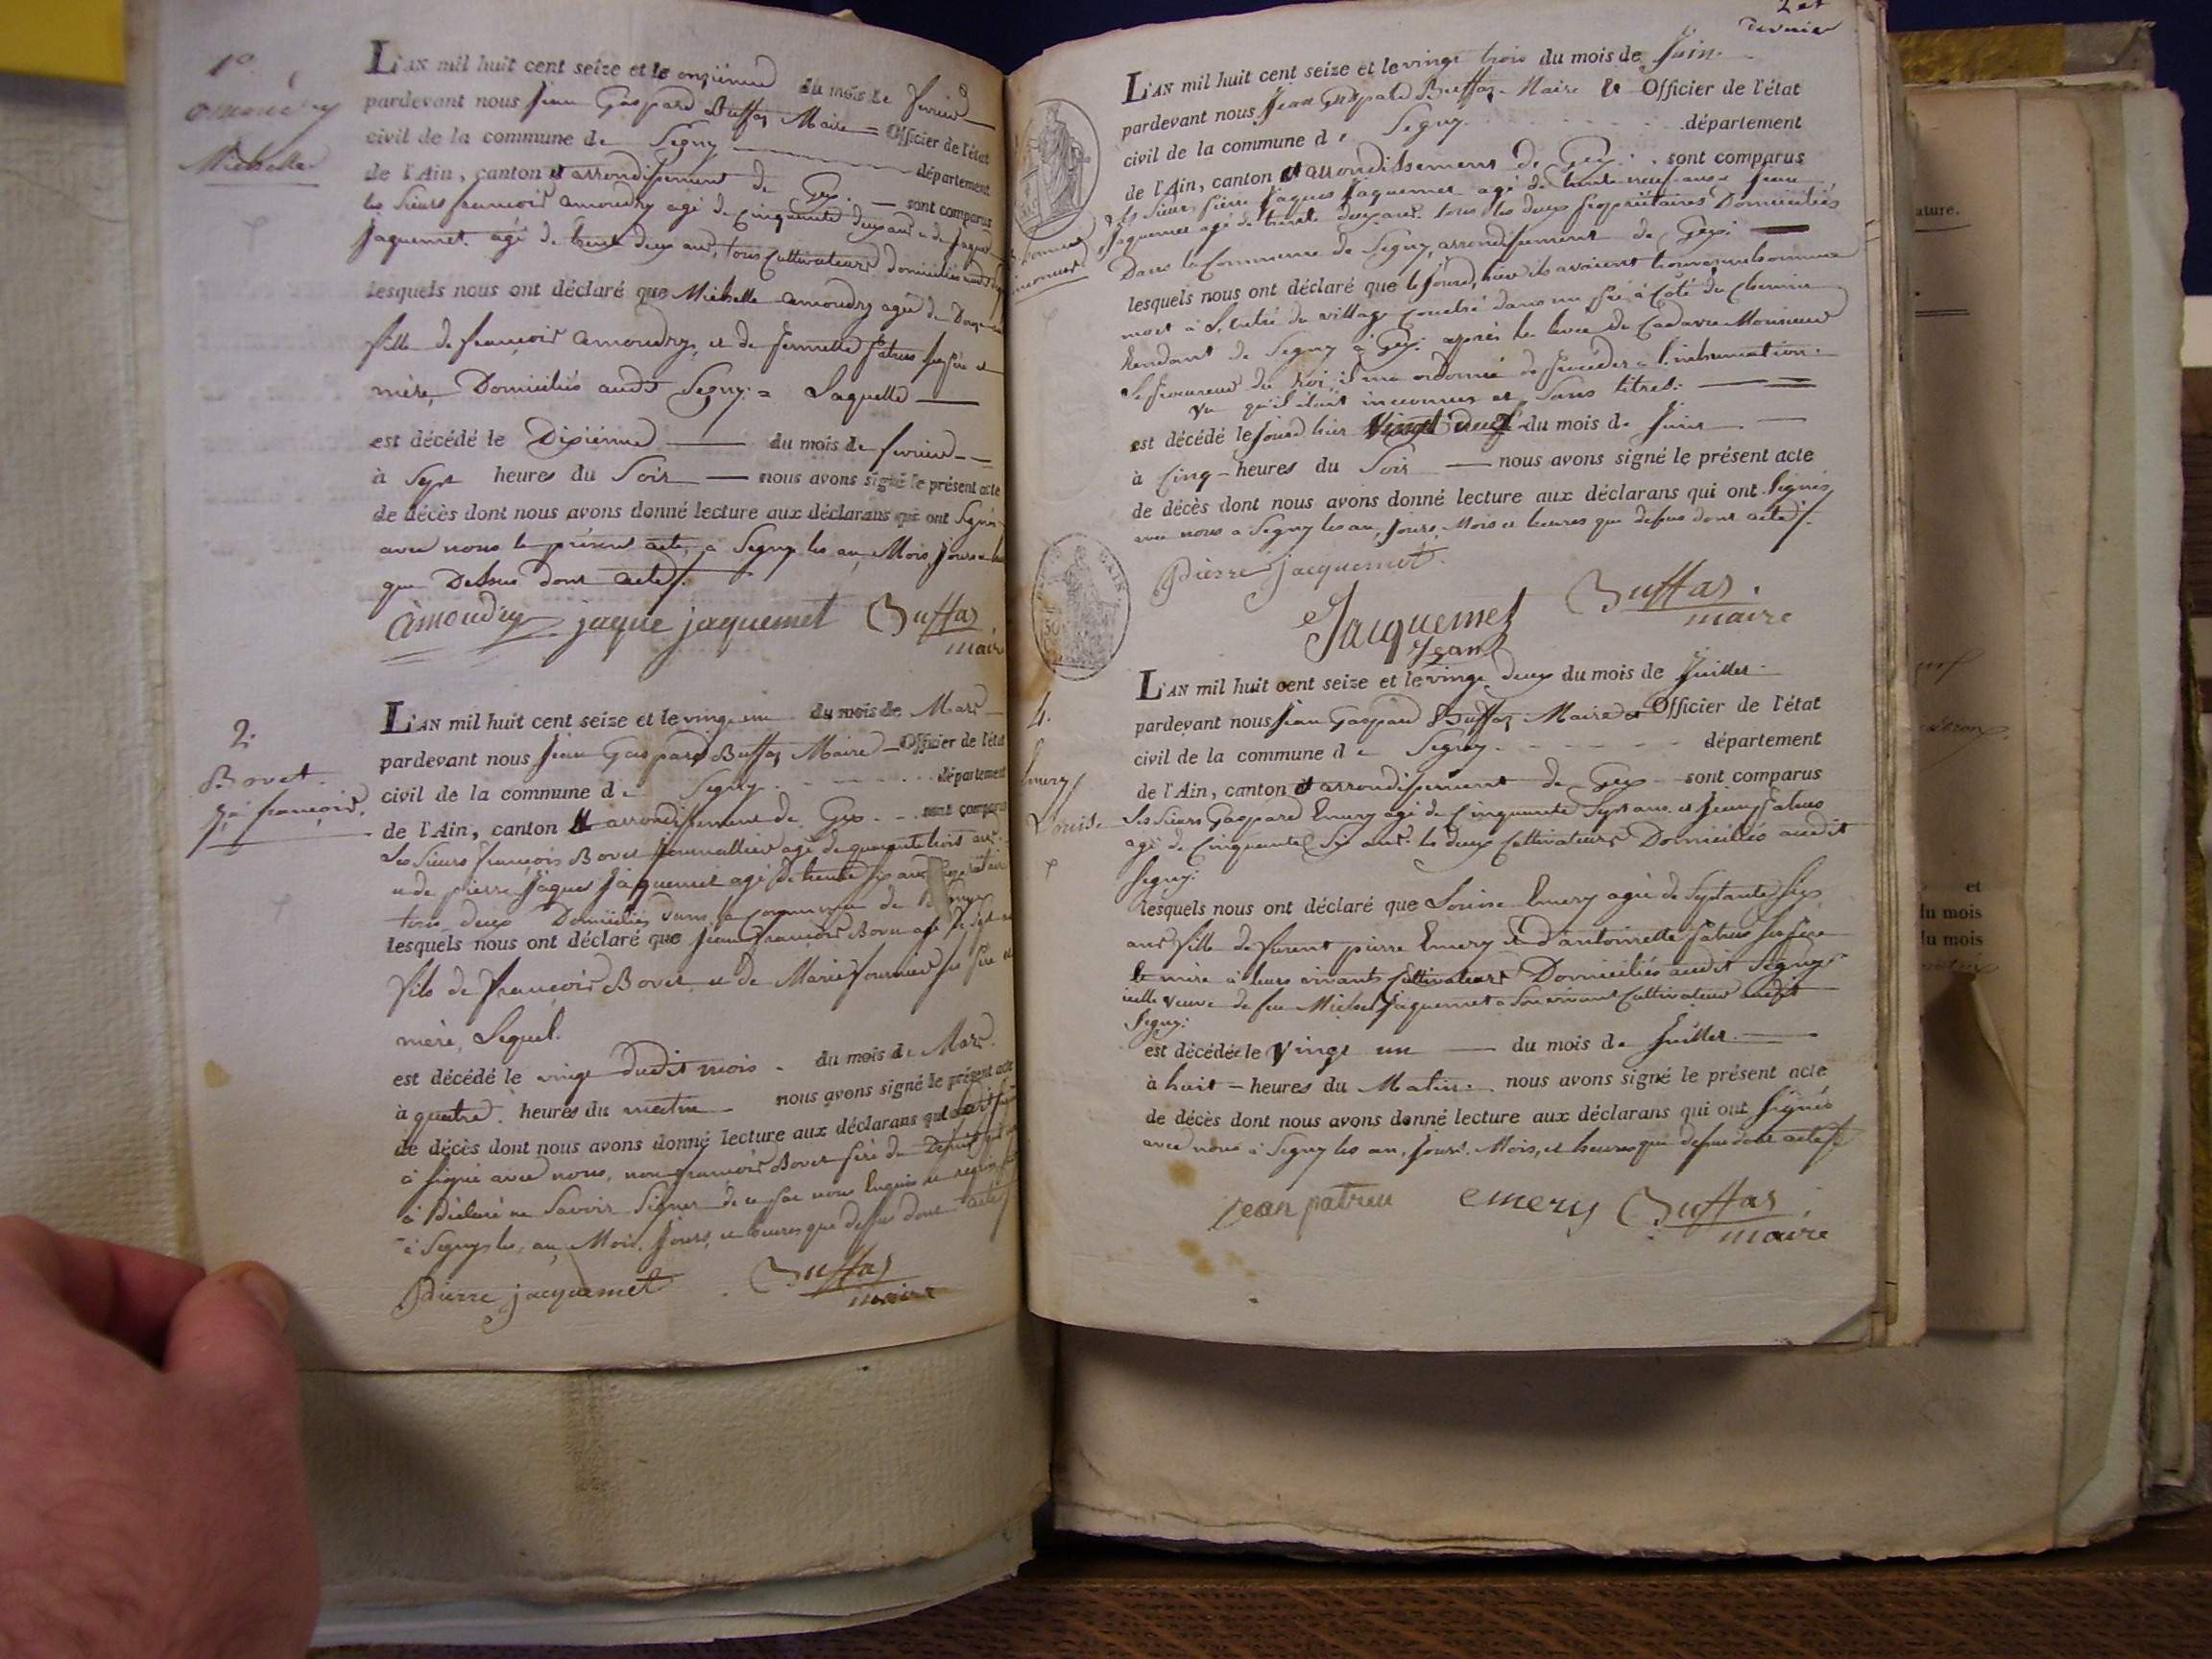 1º
amoudry
Michelle
L'AN mil huit cent seize et le onziéme du mois de fevrier
pardevant nous Jean Gaspard Buffaz Maire Officier de l'état
civil de la commune de Segny département
de l'Ain, canton et arrondissement de Gex. sont comparus
les Sieurs francois amoudry agé de Cinquante deux ans et de Jaque
Jaquemet agé de trente deux ans, tous Cultivateurs domiciliés
lesquels nous ont déclaré que Michelle amoudry agée de Douze
fille de francois amoudry, et de Pernette Patru ses père et
mère, Domiciliés audit Segny = Laquelle
est décédé le Dixiéme du mois de fevrier
à Sept heures du Soir nous avons signé le présent acte
de décès dont nous avons donné lecture aux déclarans qui ont Signés
avec nous le présent acte, a Segny les an, Mois, Jours
que Dessus dont acte
amoudry jaque jaquemet Buffaz
maire
2.
Bovet
Jn françois.
L'AN mil huit cent seize et le vingt un du mois de Mars
pardevant nous Jean Gaspard Buffaz Maire Officier de l'état
civil de la commune de Segny département
de l'Ain, canton et arrondissement de Gex sont comparus
Les Sieurs françois Bovet Journallier agé de quarante trois ans
et de pierre Jaques Jaquemet agé De trente six ans
tous deux Domiciliés dans la commune de Segny
lesquels nous ont déclaré que Jean françois Bovet agé
fils de francois Bovet et de Marie fournier ses père et
mère, Lequel.
est décédé le vingt dudit mois du mois de Mars.
à quatre heures du matin nous avons signé le présent acte
de décès dont nous avons donné lecture aux déclarans qui
à signé avec nous, non francois Bovet père du Défunt qui
à Déclaré ne Savoir Signer de ce par nous Enquis
à Segny les, an, Mois, Jours, et heures que dessus dont acte
Pierre jacquemet Buffaz
maire
2 et
dernier
L'AN mil huit cent seize et le vingt trois du mois de Juin.
pardevant nous Jean Gaspard Buffaz Maire & Officier de l'état
civil de la commune de Segny département
de l'Ain, canton et arrondissement de Gex. sont comparus
les Sieurs Pierre Jaques Jaquemet agé de trente neuf ans et Jean
Jaquemet agé de trente deux ans. tous les deux propriétaires Domiciliés
Dans la Commune de Segny, arrondissement de Gex.
lesquels nous ont déclaré que le Jourd'hier ils avaient trouvé un homme
mort à L'entré du village couché dans un pré à Coté du Chemin
tendant de Segny à Gex. après la levée du Cadavre Monsieur
Le Procureur du Roi, il m'a ordonné de procéder a l'inhumation.
Vu qu'il était inconnu et Sans titres.
est décédé le Jourd'hier Vingt deux du mois de Juin
à Cinq heures du Soir nous avons signé le présent acte
de décès dont nous avons donné lecture aux déclarans qui ont Signés
avec nous a Segny les an, Jours, Mois et heures que dessus dont acte
Pierre jacquemet.
Jacquemet Buffaz.
Jean maire
4.
Emery
Louise
L'AN mil huit cent seize et le vingt deux du mois de Juillet
pardevant nous Jean Gaspard Buffaz Maire et Officier de l'état
civil de la commune de Segny département
de l'Ain, canton et arrondissement de Gex sont comparus
Les Sieurs Gaspard Emery agé de Cinquante Sept ans et Jean Patru
agé de Cinquante Six ans. les deux Cultivateurs Domiciliés audit
Segny.
lesquels nous ont déclaré que Louise Emery agée de Septante Six
ans fille de furent pierre Emery & d'antoinette Patru Ses père
& mère à leurs vivants Cultivateurs Domiciliés audit Segny
icelle veuve de feu Michel Jaquemet a Son vivant Cultivateur audit
Segny.
est décédée le Vingt un du mois de Juillet
à huit heures du Matin. nous avons signé le présent acte
de décès dont nous avons donné lecture aux déclarans qui ont Signés
avec nous à Segny les an, Jours, Mois, et heures que dessus dont acte
jean patru emery Buffaz
maire
ature.
et
du mois
du mois